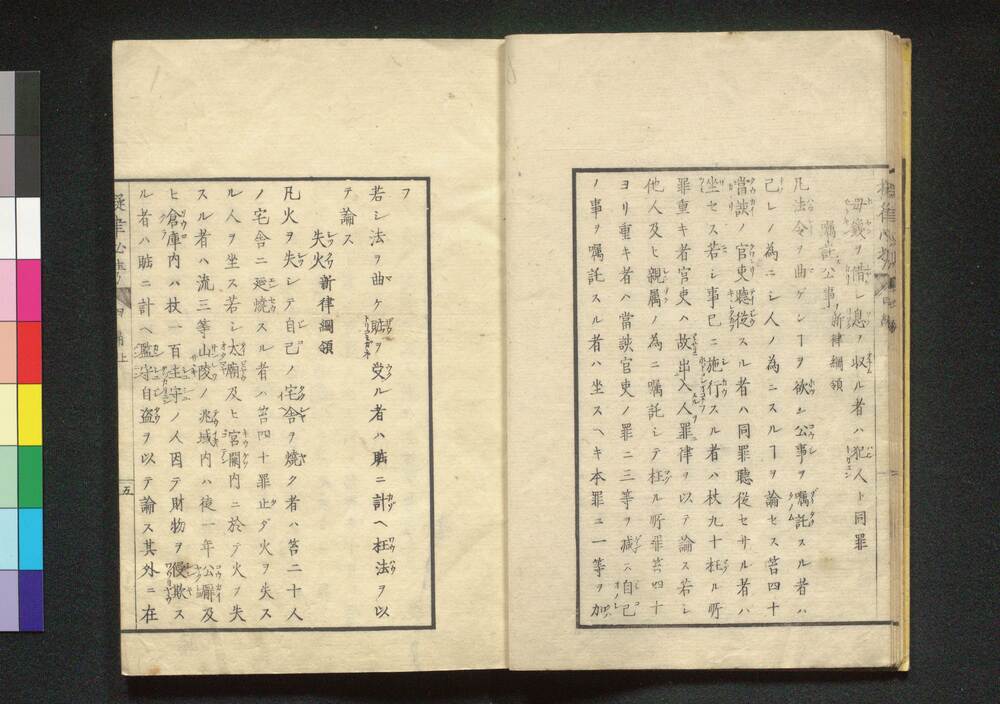 母錢ヲ借シ息ヲ收ル者ハ犯人ト同罪
囑託公事 新律綱領
凡法令ヲ曲ゲンヿヲ欲シ公事ヲ囑託スル者ハ
己レノ為ニシ人ノ為ニスルヿヲ論セス笞四十
當該ノ官吏聽從スル者ハ同罪聽從セサル者ハ
坐セス若シ事已ニ施行スル者ハ杖九十枉ル所
罪重キ者官吏ハ故出入人罪律ヲ以テ論ス若シ
他人及ヒ親属ノ為ニ囑託シテ枉ル所罪笞四十
ヨリ重キ者ハ當該官吏ノ罪ニ三等ヲ減ス自己
ノ事ヲ囑託スル者ハ坐スヘキ本罪ニ一等ヲ加
フ
若シ法ヲ曲ケ贓ヲ受ル者ハ贓ニ計ヘ枉法ヲ以
テ論ス
失火 新律綱領
凡火ヲ失シテ自己ノ宅舎ヲ燒ク者ハ笞二十人
ノ宅舎ニ延燒スル者ハ笞四十罪止ダ火ヲ失ス
ル人ヲ坐ス若シ太廟及ヒ宮闕内ニ於テ火ヲ失
スル者ハ流三等山陵ノ兆域内ハ徒一年公廨及
ヒ倉庫内ハ杖一百主守ノ人因テ財物ヲ侵欺ス
ル者ハ贓ニ計ヘ監守自盗ヲ以テ論ス其外ニ在
五